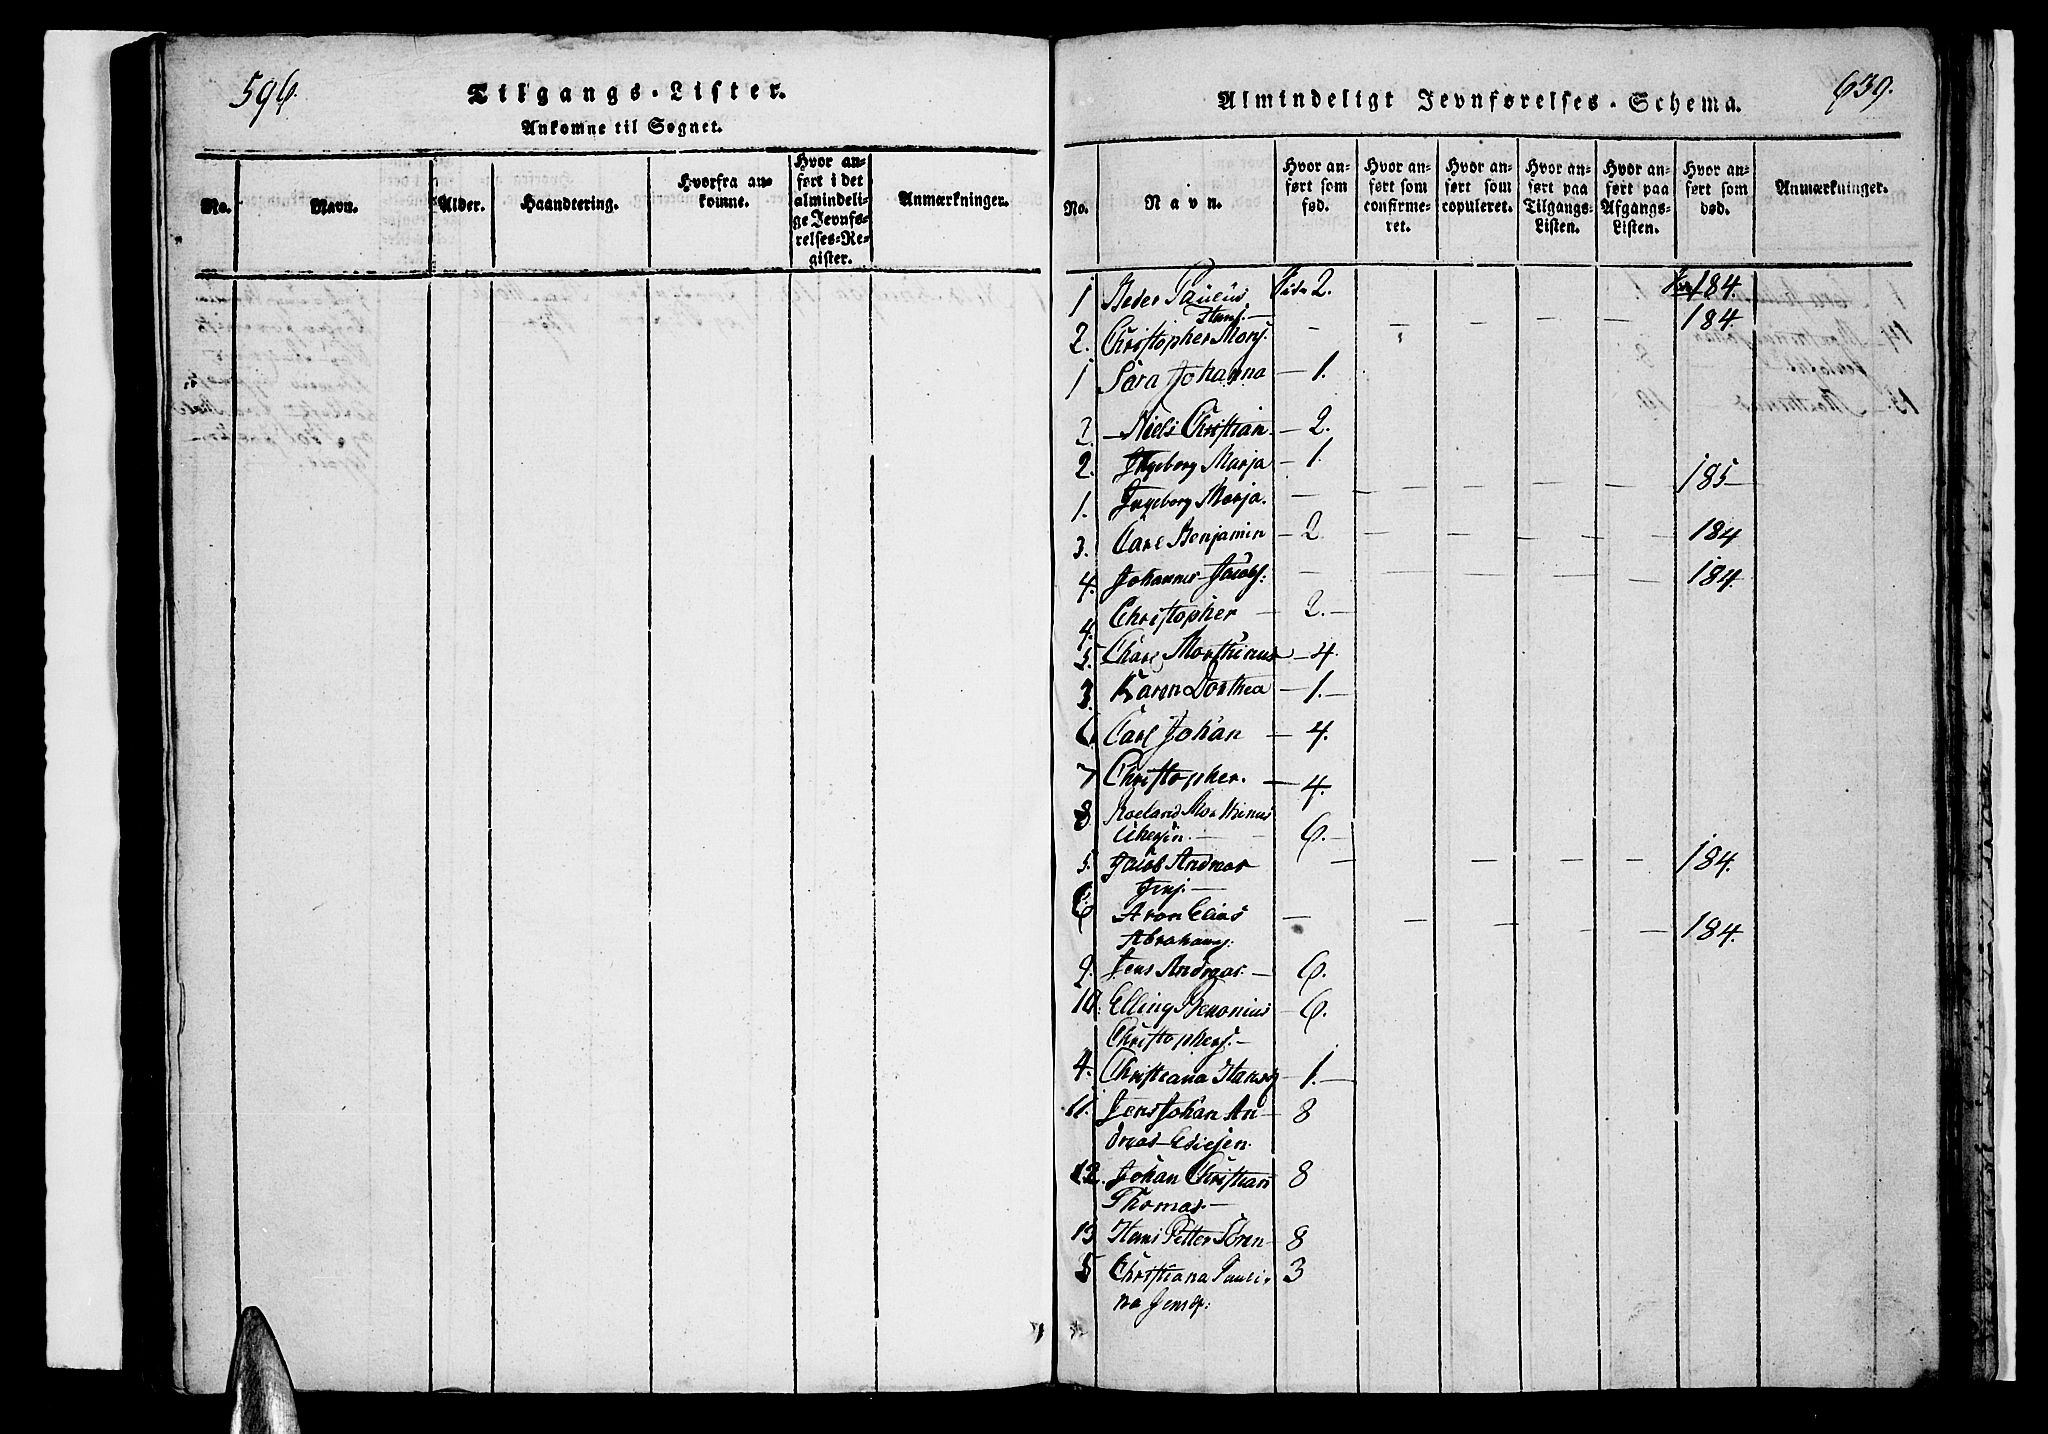 596.
Tilgangs-Lister.
Ankomne til Sognet.
No.
Navn.
Alder.
Haandtering.
Hvorfra an-
komne.
Hvor an-
ført i det
almindeli-
ge Jevnfø-
relses-Re-
gister.
Anmærkninger.
639.
Almindeligt Jevnførelses-Schema.
No.
Navn.
Hvor an-
ført som
fød.
Hvor an-
ført som
confirme-
ret.
Hvor an-
ført som
copuleret.
Hvor an-
ført paa
Tilgangs-
Listen.
Hvor an-
ført paa
Afgangs-
Listen.
Hvor an-
ført som
død.
Anmærkninger.
1 Peder Paulus 2. 184.
Hans.
2. Christopher Mons. — — — — — 184.
1 Sara Johanna — 1.
2. Niels Christian — 2.
2. Ingeborg Marja — 1.
1. Ingeborg Marja. — — — — — 185
3. Carl Benjamin — 2 — — — — 184
4. Johannes Jacobs. — — — — — 184.
4. Christopher — 2.
5. Charl Morthinus — 4
3. Karen Dorthea — 1.
6. Carl Johan — 4.
7 Christopher. — 4.
8 Roeland Morthinus
6.
5. Jacob Andreas — — — — 184.
Jens.
6 Aron Elias — — — — — 184.
Abrahams.
9. Jens Andreas — 6.
10. Elling Hieronius — 6.
Christophers.
4. Christiana Hansd. — 1.
11. Jens Johan An- 8
dreas
12. Johan Christian 8
Thomas
13 Hans Petter Sören 8
5 Christiana Pauli- 3
na Jensd.